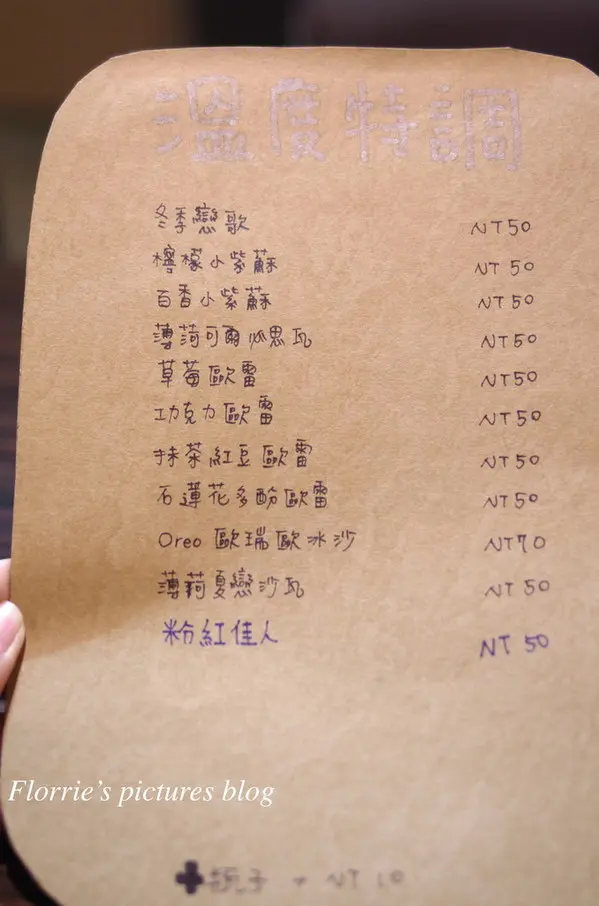 溫度特調
冬季戀歌 NT50
檸檬小紫蘇 NT 50
百香小紫蘇 NT 50
薄荷可爾必思瓦 NT50
草莓歐蕾 NT50
巧克力歐蕾 NT50
抹茶紅豆歐蕾 NT50
石蓮花多酚歐蕾 NT50
Oreo 歐瑞歐冰沙 NT70
薄荷夏戀沙瓦 NT 50
粉紅佳人 NT 50
Florrie's pictures blog
NT 10